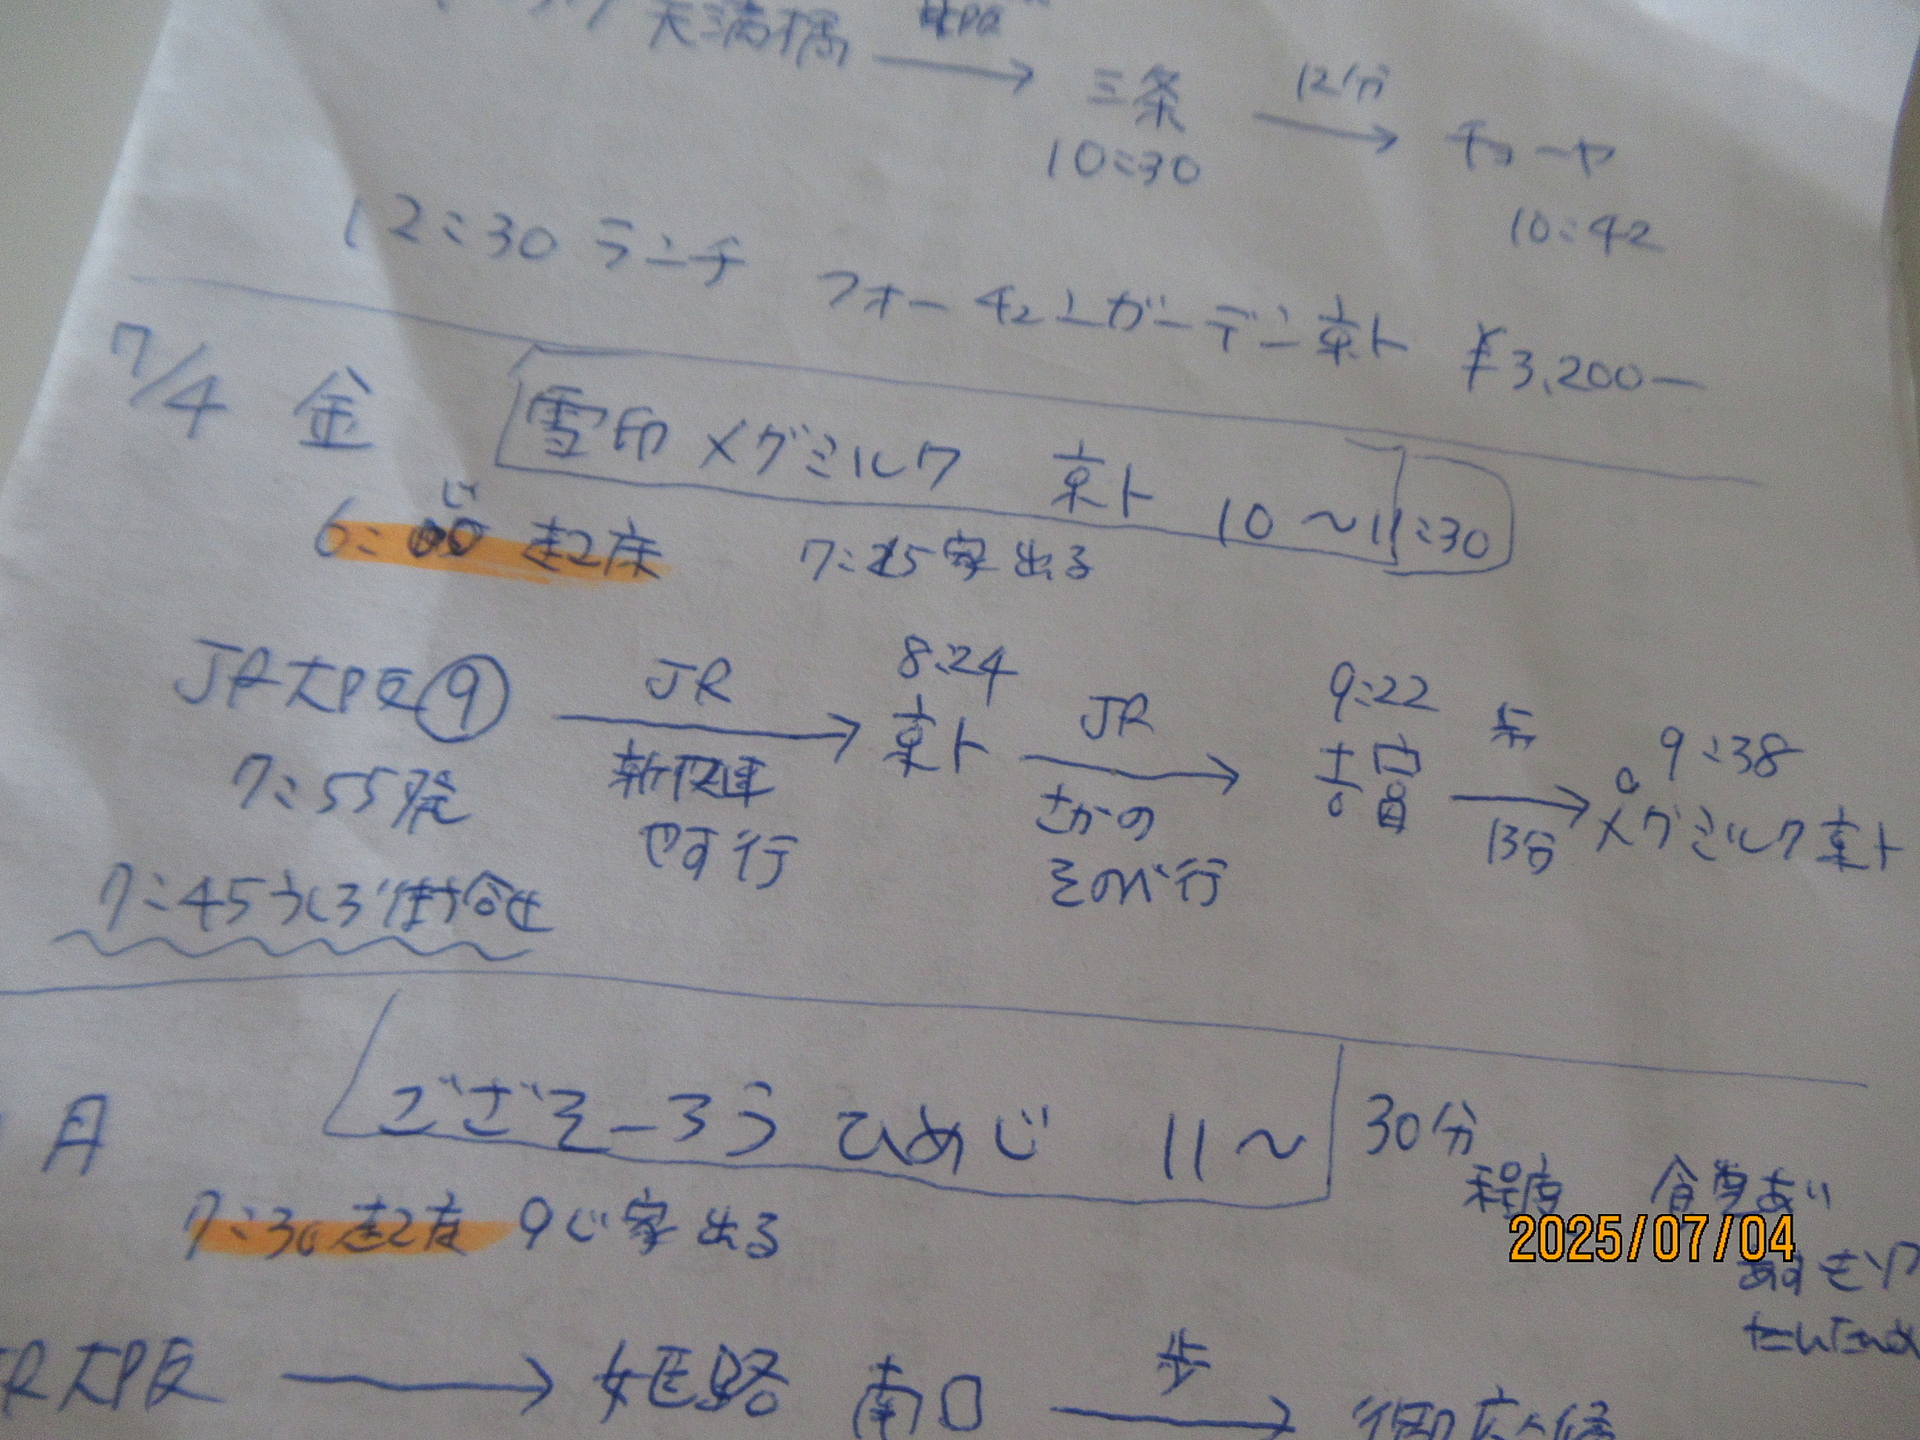 天満橋 → 三条 12分 → チョーヤ
10:30 10:42
12:30 ランチ フォーチュンガーデン京ト ¥3,200ー
7/4 金 雪印メグミルク 京ト 10〜11:30
6: じ 起床 7:25家出る
JR大阪⑨ JR → 8:24 京ト JR → 9:22 吉富 歩 → 9:38
7:55発 新快速 さがの 13分 メグミルク京ト
やす行 そのべ行
7:45うしろ待合せ
月 ござそーろう ひめじ 11〜 30分
程度 食事あり
7:30起床 9じ家出る
2025/07/04
JR大阪 → 姫路 南口 歩 → 御座候